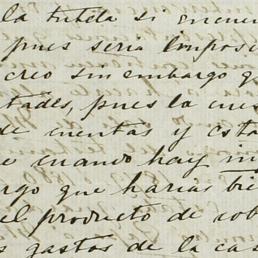 la tutela si encuen
pues seria imposi
creo sin embargo q
tades, pues la cues
de cuentas y esta
e cuando hay in
rgo que harias bie
el producto de cob
s gastos de la ca